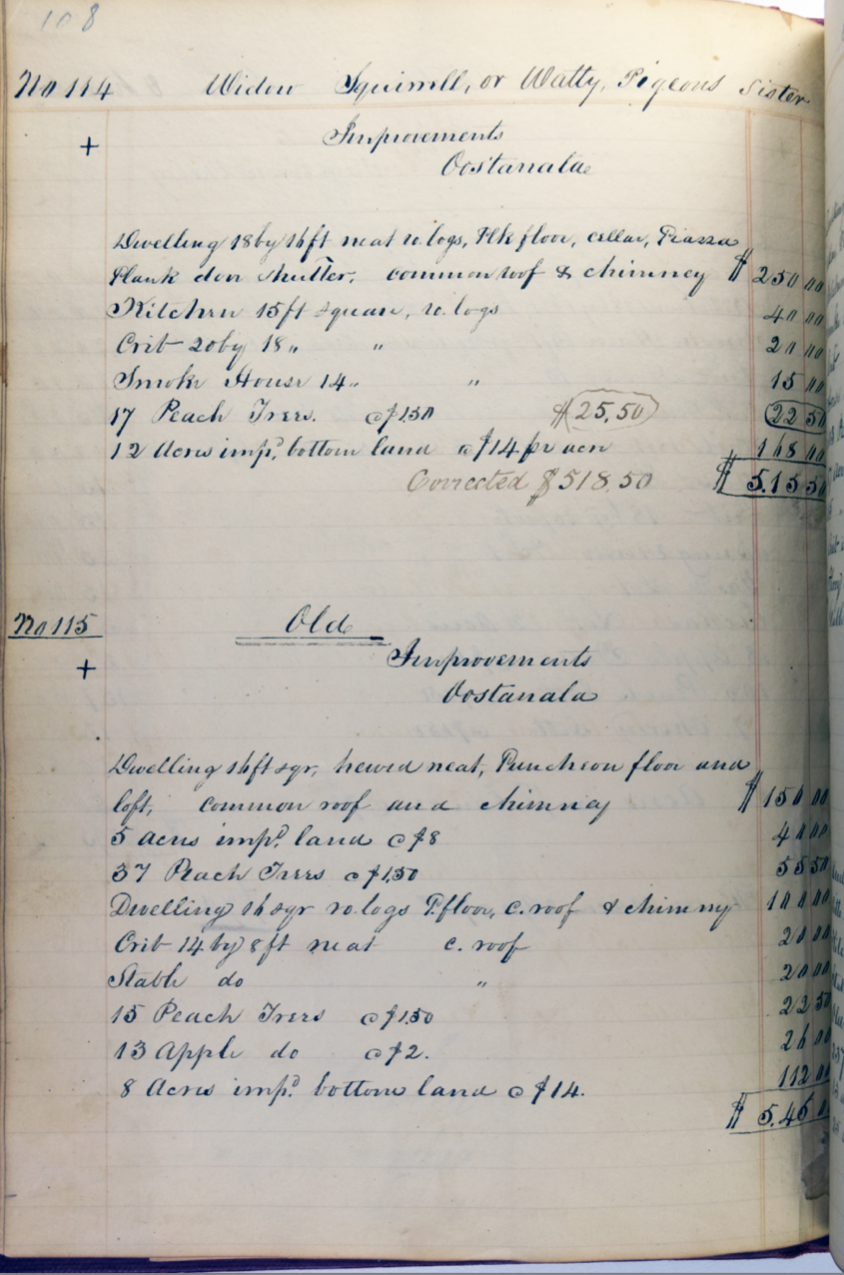 108
No 114 Widow Squirrell, or Watty, Pigeons Sister
+ Improvements
Oostanala
Dwelling 18 by 16 ft neat ro. logs, Plk floor, cellar, Piazza
Plank door shutter, common roof & chimney $ 250 00
Kitchen 15 ft square, ro. logs 40 00
Crib 20 by 18 " " 20 00
Smoke House 14 " " 15 00
17 Peach Trees. @ $1.50 $25,50 22 50
12 Acres impd. bottom land @ $14 pr acre 168 00
Corrected $518.50 $ 5.15 50
No 115 Old
+ Improvements
Oostanala
Dwelling 16 ft sqr, hewed neat, Puncheon floor and
loft, common roof and chimney $ 150 00
5 Acres impd. land @ $8 40 00
37 Peach Trees @ $1.50 55 50
Dwelling 16 sqr ro. logs P. floor, c. roof & chimney 100 00
Crib 14 by 8 ft neat c. roof 20 00
Stable do " 20 00
15 Peach Trees @ $1.50 22 50
13 Apple do @ $2. 26 00
8 Acres impd. bottom land @ $14. 112 00
$ 5.46 0